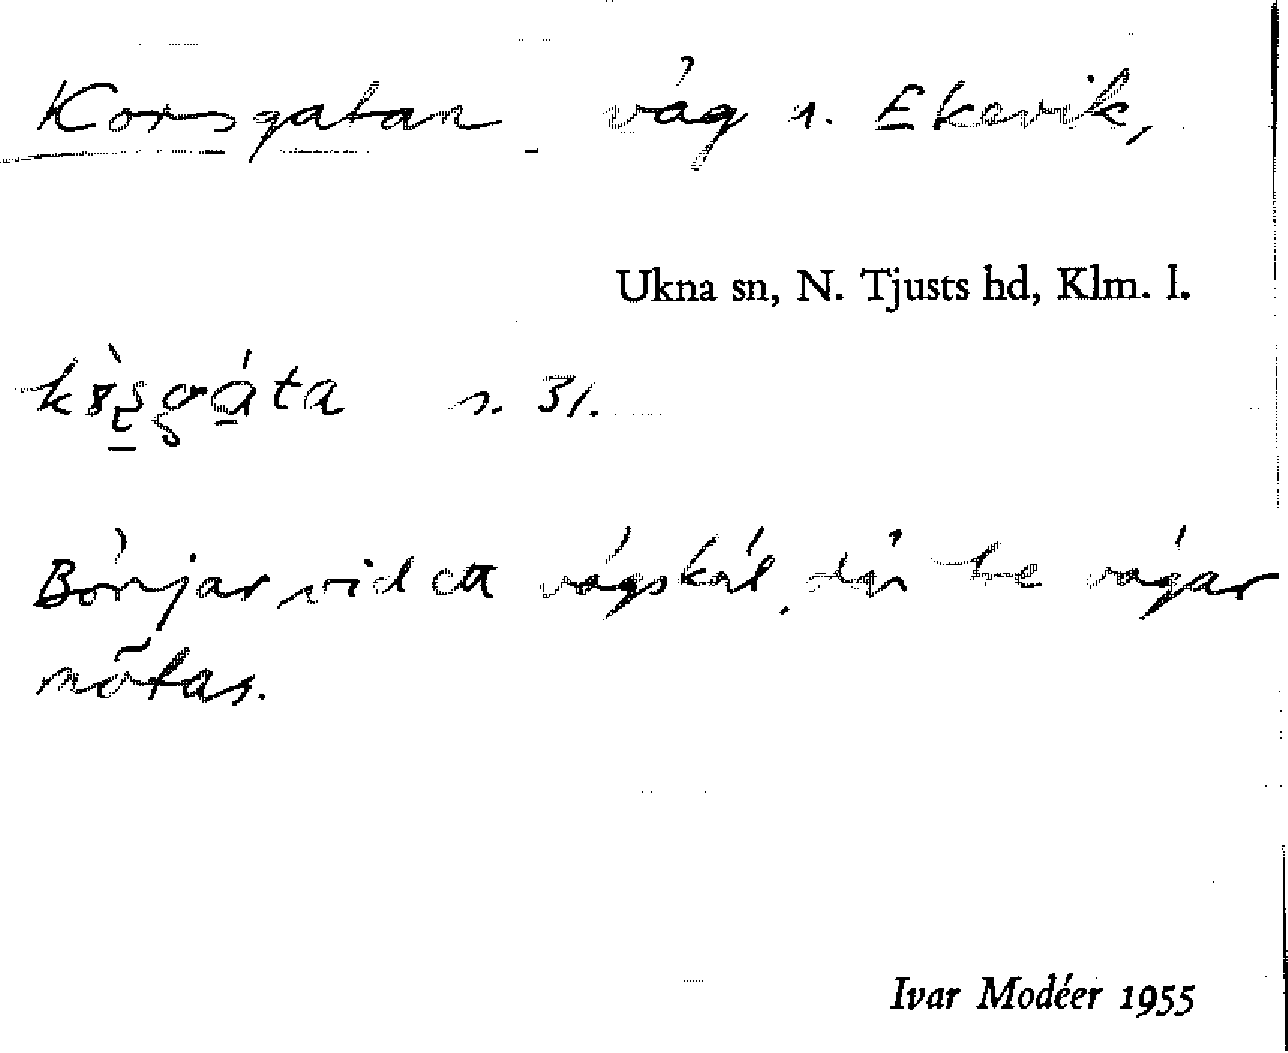 Korsgatan väg s. Ekevik,
Ukna sn, N. Tjusts hd, Klm. l.
s. 31.
Börjar vid ett vägskäl, där tre vägar
mötas.
Ivar Modéer 1955